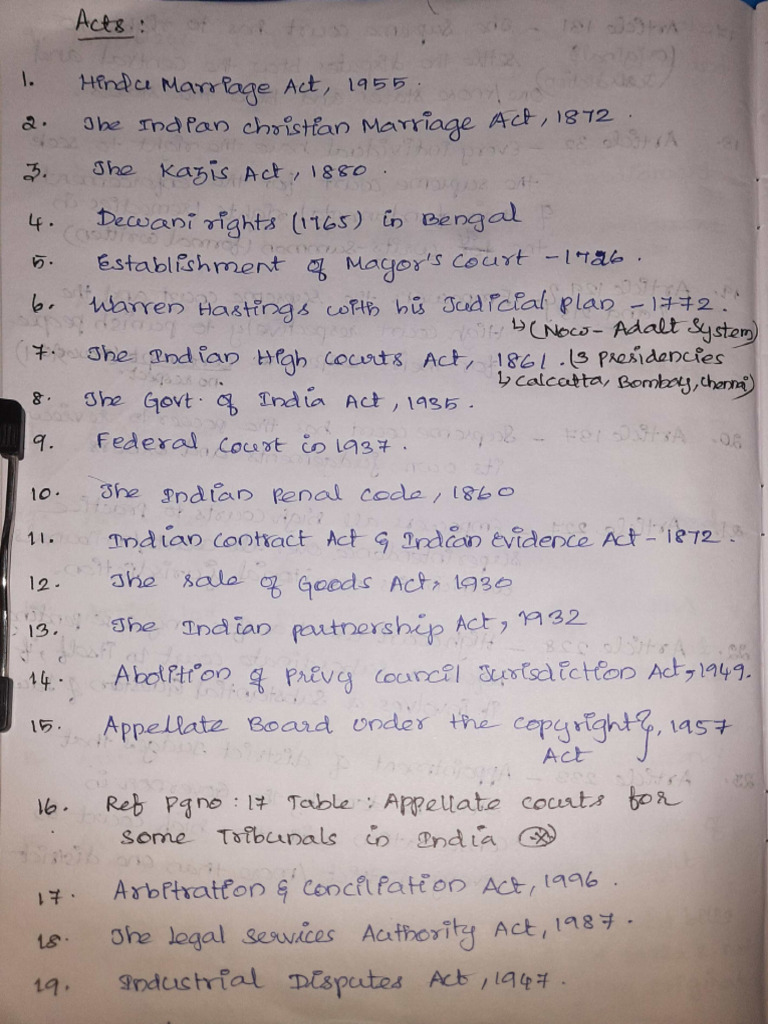 Acts :
1. Hindu Marriage Act, 1955.
2. The Indian christian Marriage Act, 1872.
3. The Kazis Act, 1880.
4. Dewani rights (1765) in Bengal
5. Establishment of Mayor's court - 1726.
6. Warren Hastings with his Judicial plan - 1772.
↳ (Noco- Adalt System)
7. The Indian High courts Act, 1861. (3 presidencies
↳ Calcatta, Bombay, Chennai)
8. The Govt. of India Act, 1935.
9. Federal court in 1937.
10. The Indian Penal code, 1860
11. Indian contract Act & Indian Evidence Act - 1872.
12. The sale of Goods Act, 1930
13. The Indian partnership Act, 1932
14. Abolition of Privy council Jurisdiction Act, 1949.
15. Appellate Board under the copyright, 1957
Act
16. Ref pgno : 17 Table : Appellate courts for
some Tribunals in India
17. Arbitration & Conciliation Act, 1996.
18. The legal services Authority Act, 1987.
19. Industrial Disputes Act, 1947.